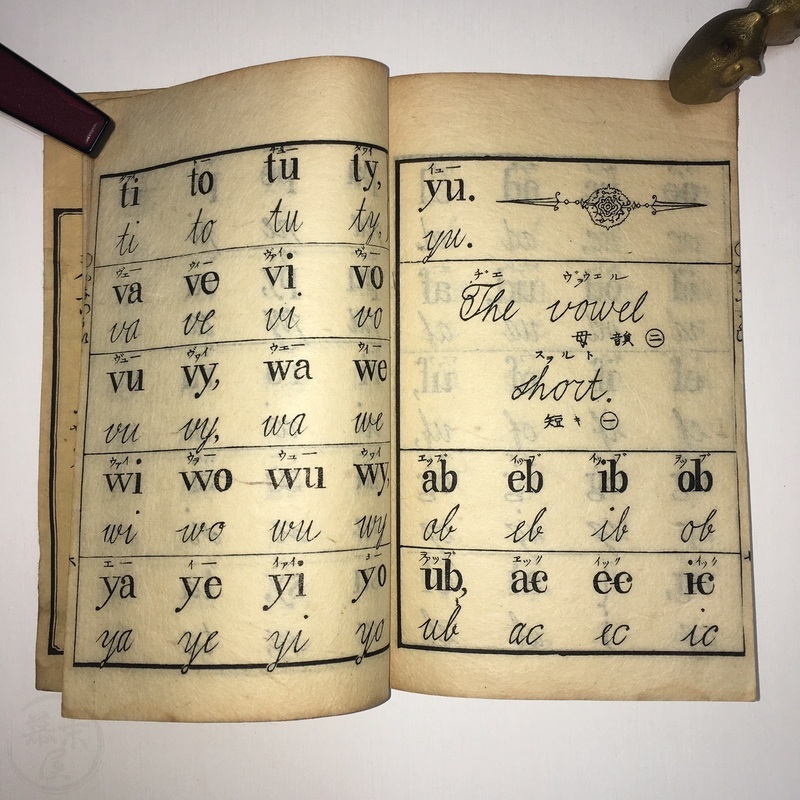 ti to tu ty,
ti to tu ty,
ヴエー ヴィー ヴァイ ヴヲー
va ve vi vo
va ve vi vo
ヴュー ヴァイ ウエー ウィー
vu vy, wa we
vu vy, wa we
ウァイ ウュー
wi wo wu wy,
wi wo wu wy
エー イー イアイ ヨー
ya ye yi yo
ya ye yi yo
イュー
yu.
yu.
ヂエ ヴヲウエル
The vowel
母 韻 二
スヲルト
short.
短キ 一
エッブ イッブ イッブ ヲッブ
ab eb ib ob
ab eb ib ob
アッブ エック イック イック
ub, ac ec ic
ub ac ec ic